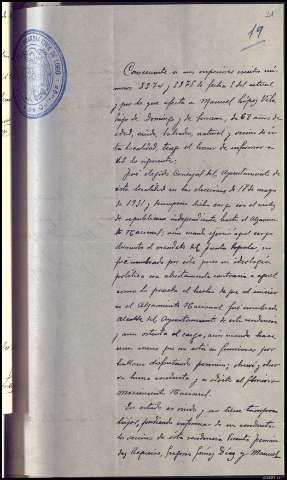 19
Concerniente a sus superiores escritos nú-
meros 3374 y 3375 de fecha 5 del actual
y por lo que afecta a Manuel López Vila
hijo de Domingo y de , de 67 años de
edad, viudo, labrador, natural y vecino de es-
ta localidad, tengo el honor de informar a
Vd. lo siguiente:
Fué elegido Concejal del Ayuntamiento de
esta localidad en las elecciones de 18 de mayo
de 1931 y desempeñó dicho cargo con el matiz
de republicano independiente hasta el Alzamien-
to Nacional, aún cuando ejerció aquel cargo
durante el mandato del Frente Popular, no
fué nombrado por este pues su ideología
política era abiertamente contraria a aquel
como lo prueba el hecho de que al iniciar-
se el Alzamiento Nacional fué nombrado
Alcalde del Ayuntamiento de esta residencia
y aun ostenta el cargo, aún cuando hace
unos meses que no está en funciones por
hallarse disfrutando permiso; observó y obser-
va buena conducta y es adicto al Glorioso
Movimiento Nacional.
Su estado es viudo y no tiene
hijos, pudiendo informar de su conducta
los vecinos de esta residencia Vicente
Gómez Díaz y Manuel